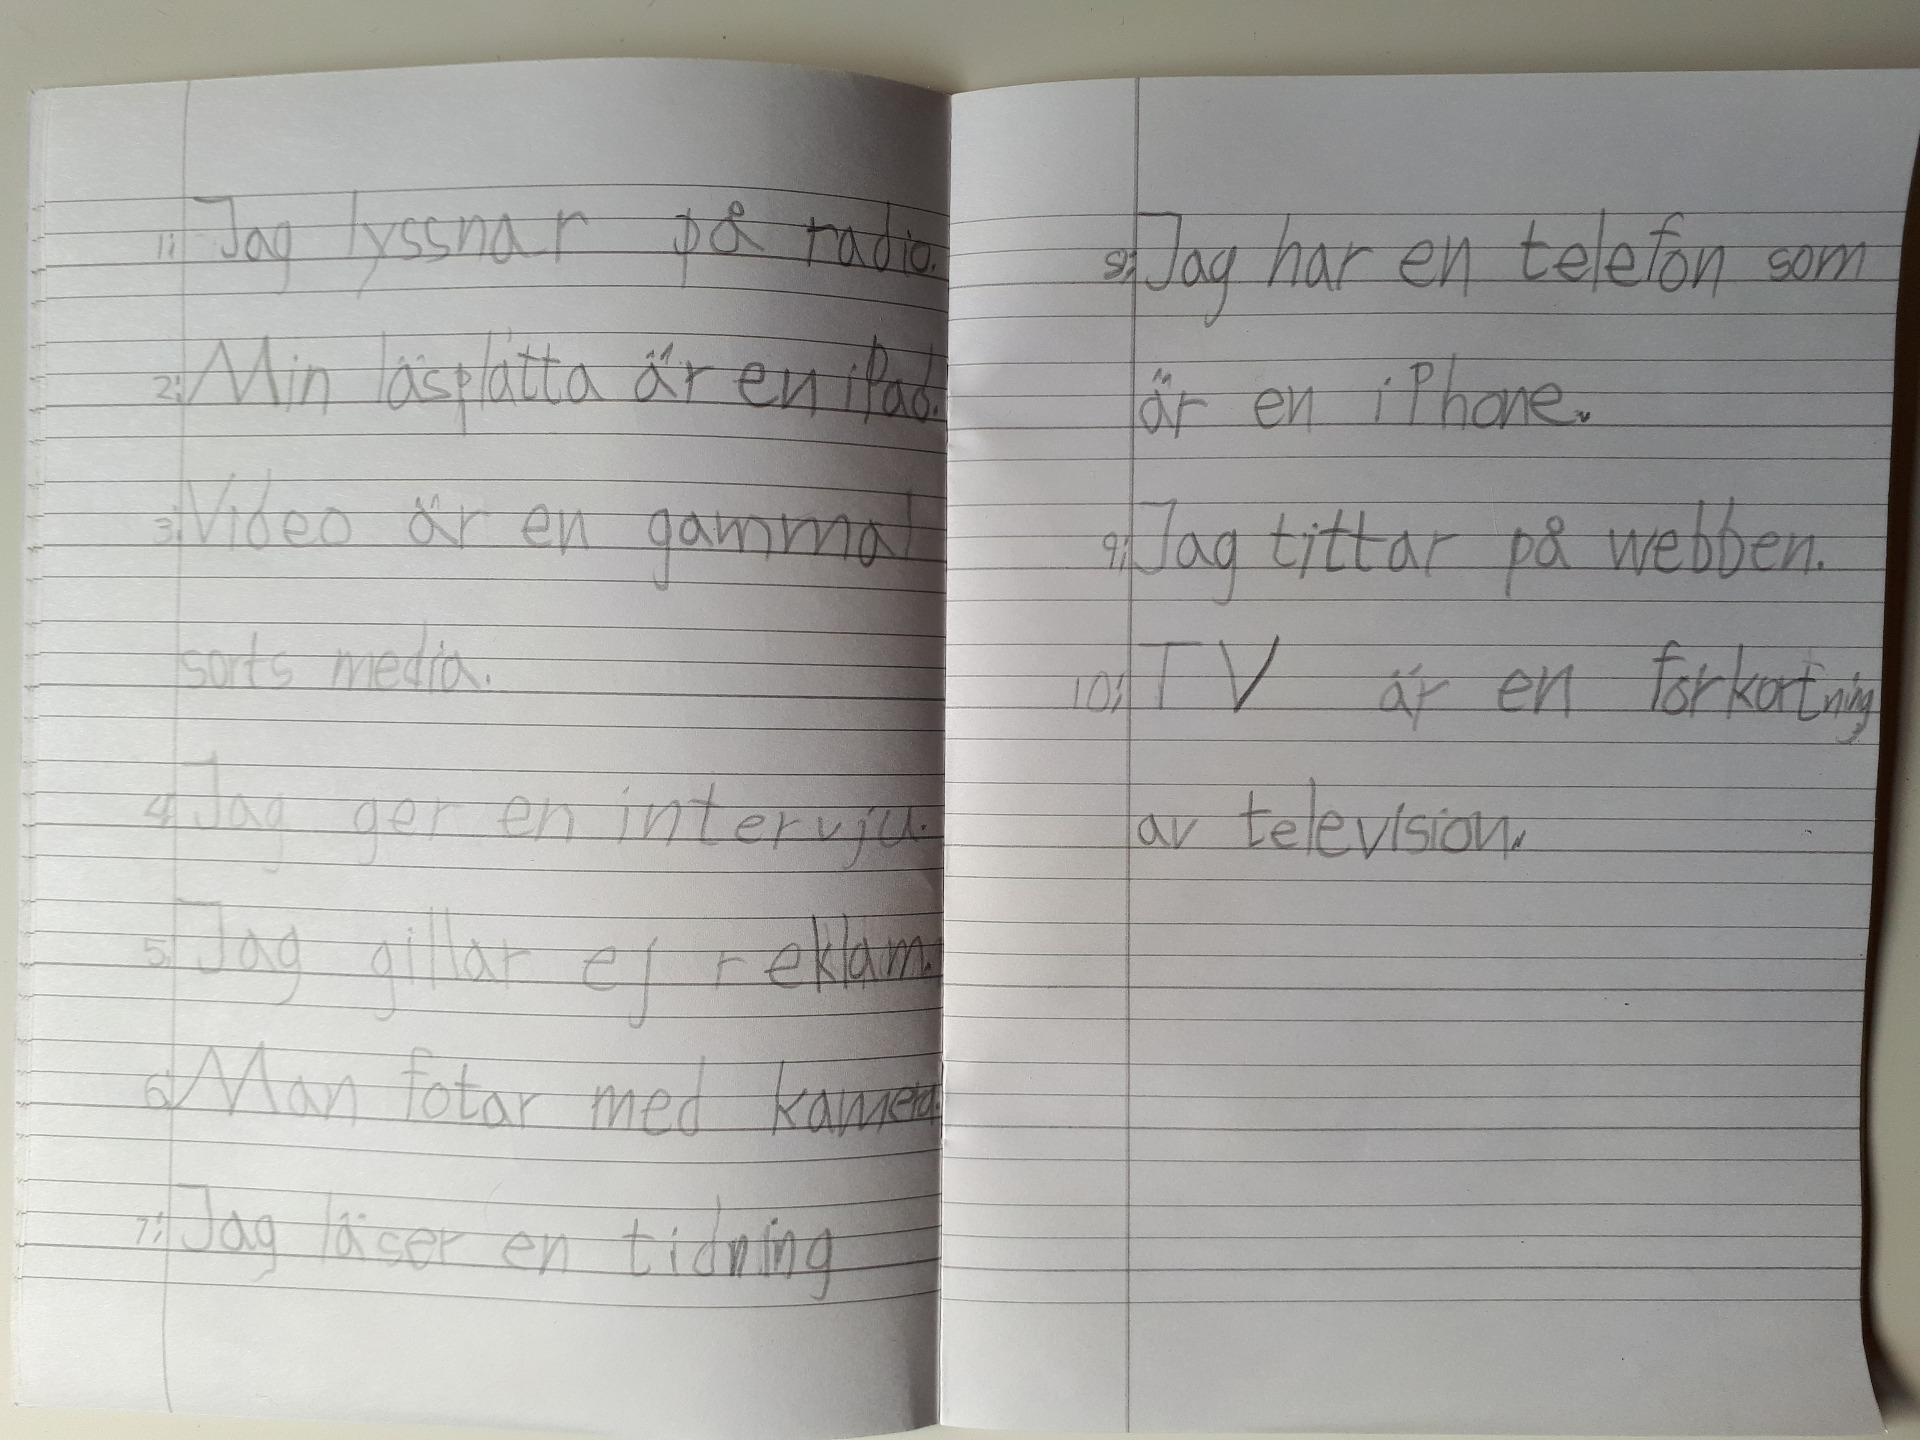 1: Jag lyssnar på radio.
2: Min läsplatta är en iPad.
3: Video är en gammal
sorts media.
4: Jag ger en intervju.
5: Jag gillar ej reklam.
6: Man fotar med kamera.
7: Jag läser en tidning
8: Jag har en telefon som
är en iPhone.
9: Jag tittar på webben.
10: TV är en förkortning
av television.